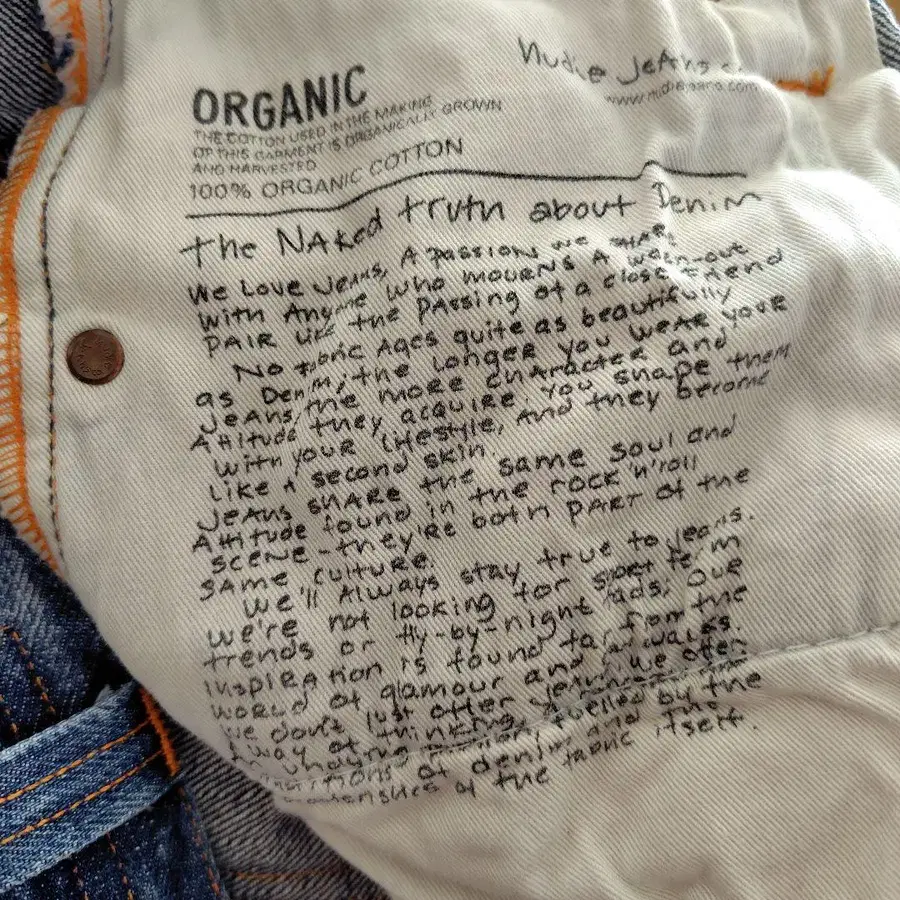 Nudie Jeans co
www.nudiejeans.com
ORGANIC
THE COTTON USED IN THE MAKING
OF THIS GARMENT IS ORGANICALLY GROWN
AND HARVESTED
100% ORGANIC COTTON
The Naked truth about Denim
We Love Jeans, A passion we share
with Anyone who mourns A worn-out
pair like the passing of a close friend
No fabric Ages quite as beautifully
as Denim, the longer you wear your
jeans the more character and
Attitude they acquire. you shape them
with your lifestyle, And they become
like a second skin.
Jeans share the same soul and
Attitude found in the rock'n'roll
scene - they're both part of the
same culture.
We'll Always stay true to jeans.
we're not looking for short term
trends or fly-by-night fads, Our
inspiration is found far from the
world of glamour and catwalks.
We don't just offer jeans, we offer
A way of thinking,
An undying passion fuelled by the
traditions of denim and the
of the fabric itself.